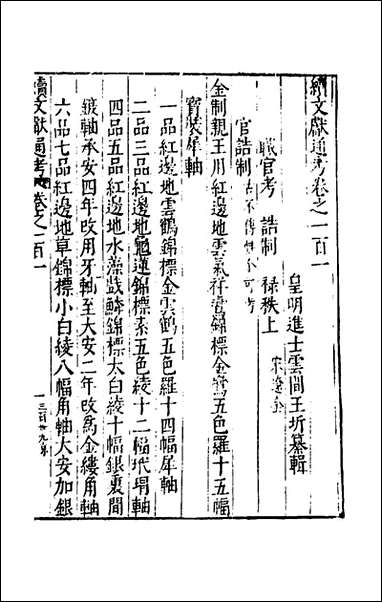 續文獻通考卷之一百一
皇明進士雲間王圻纂輯
職官考 誥制 祿秩上
宋遼金
官誥制
金制親王用紅邊地雲氣祥鸞錦標金鸞五色羅十五幅
寶裝犀軸
一品紅邊地雲鶴錦標金雲鶴五色羅十四幅犀軸
二品三品紅邊地龜蓮錦標素五色綾十二幅玳瑁軸
四品五品紅邊地水藻戲鱗錦標大白綾十幅銀裹間
鍍軸承安四年改用牙軸至大安二年改爲金縷角軸
六品七品紅邊地草錦標小白綾八幅角軸大安加銀
續文獻通考 卷之一百一
一